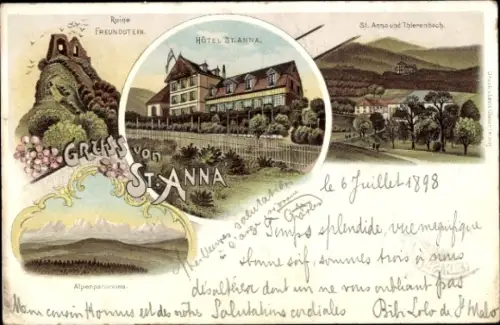 Ruine
FREUNDSTEIN.
HÔTEL ST. ANNA.
St. Anna und Thierenbach.
GRUSS von
ST. ANNA
Alpenpanorama.
le 6 Juillet 1898
Meilleures salutations
Temps splendide, vue magnifique
bonne soif, sommes trois à nous
désaltérer dont un me vous oubliant pas
Mon cousin Hommes est des nôtres Salutations cordiales Bib. Lolo de St Malo